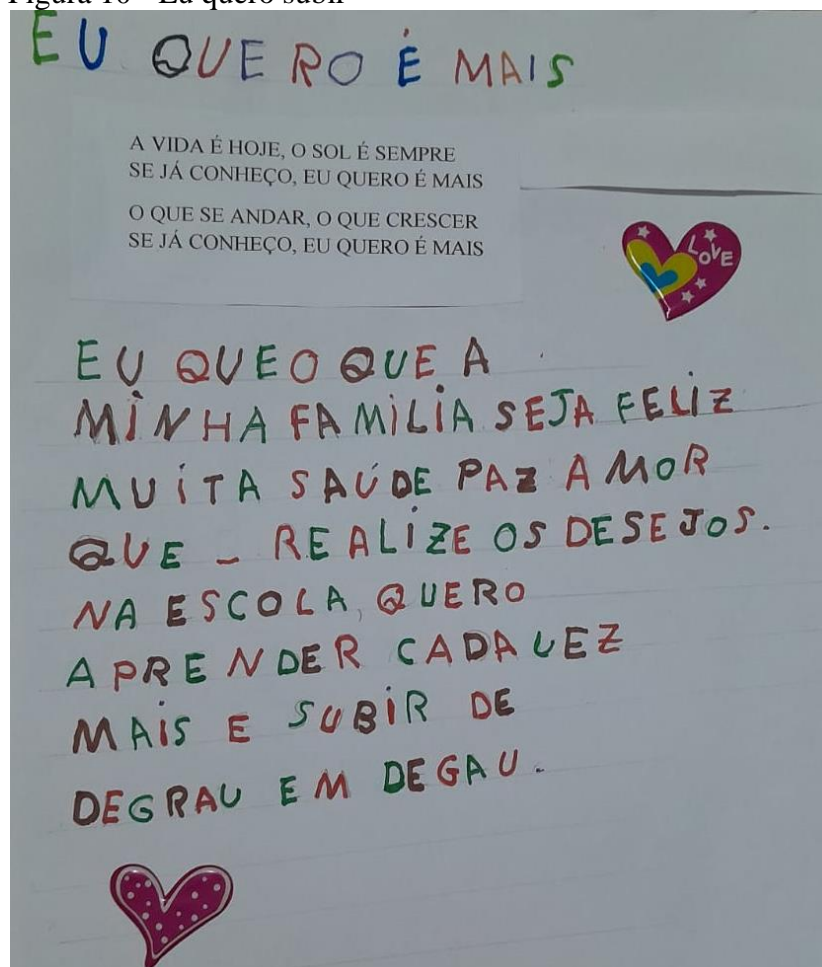 Figura 10 - Eu quero subir
EU QUERO É MAIS
A VIDA É HOJE, O SOL É SEMPRE
SE JÁ CONHEÇO, EU QUERO É MAIS
O QUE SE ANDAR, O QUE CRESCER
SE JÁ CONHEÇO, EU QUERO É MAIS
LOVE
EU QUEO QUE A
MINHA FAMILIA SEJA FELIZ
MUITA SAÚDE PAZ AMOR
QUE _ REALIZE OS DESEJOS.
NA ESCOLA, QUERO
APRENDER CADA VEZ
MAIS E SUBIR DE
DEGRAU EM DEGAU.